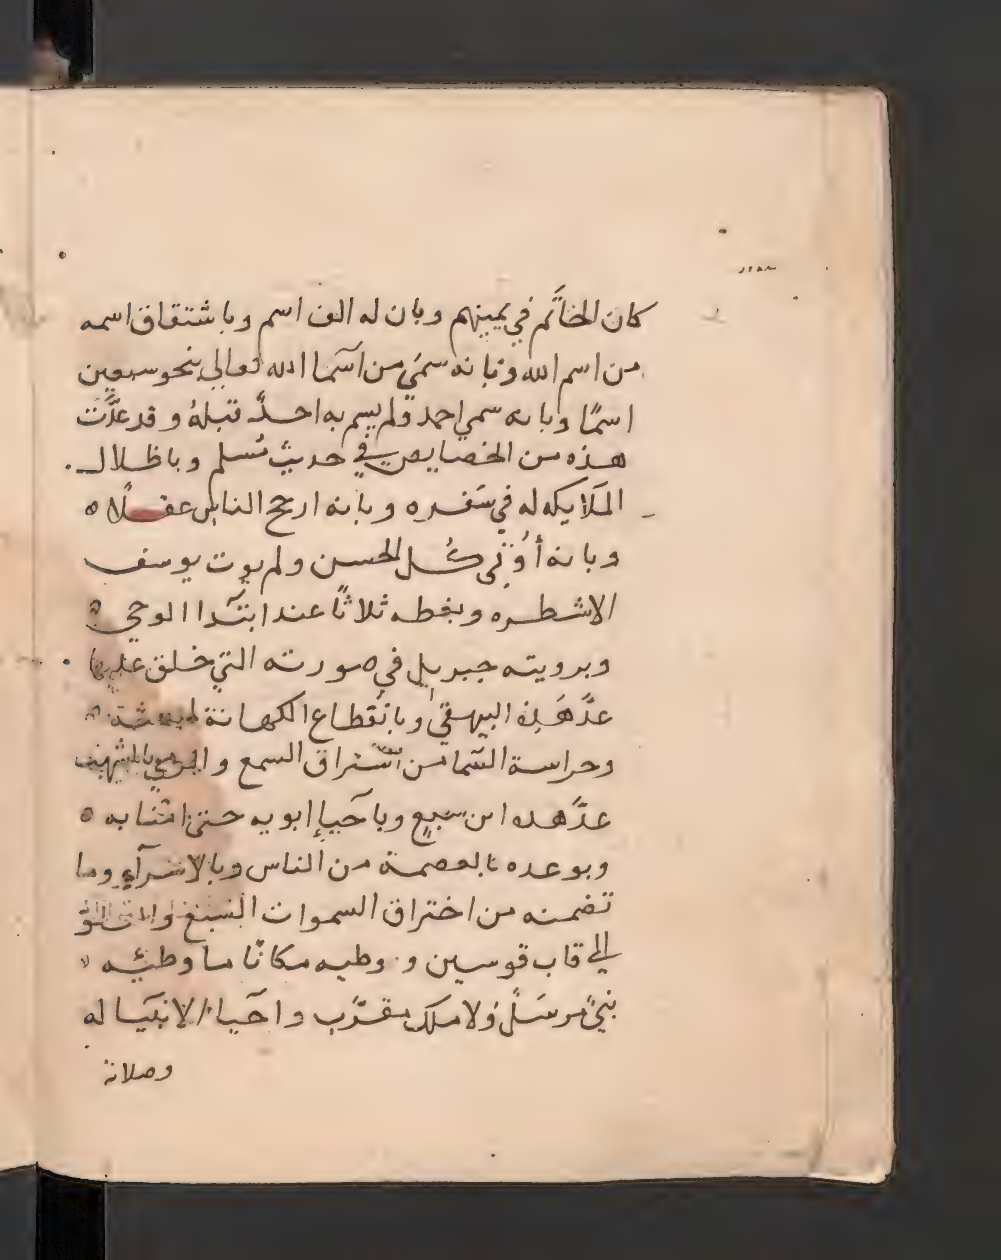 كان الخاتَم في يمينهم وبان له الف اسم وباشتقاق اسمه
من اسم الله وبانه سمي من اسما الله تعالى بنحو سبعين
اسمًا وبانه سمي احمد ولم يسم به احدٌ قبلهُ وقد عدَّت
هذه من الخصايص في حديث مُسلم وباظلال
الملايكه له في سَفره وبانه ارجح الناس عقلًا ه
وبانه أُوتي كُل الحسن ولم يوت يوسف
الا شطره وبغطه ثلاثًا عند ابتدا الوحي ه
وبرويته جبريل في صورته التي خلق عليها
عدَّ هَذِه البيهقي وبانقطاع الكهانة لمبعثه ه
وحراسة السما من استراق السمع والرمي بالشهب
عدَّ هذه ابن سبع وباحيإ ابويه حتى امنا به ه
وبوعده بالعصمة من الناس وبالاسرآء وما
تضمنه من اختراق السموات السبع والعلو
الى قاب قوسين و وطيه مكانًا ما وطئه
نبيٌ مرسَلٌ ولا ملك مقرَّب واحيا الانبيا له
وصلاته